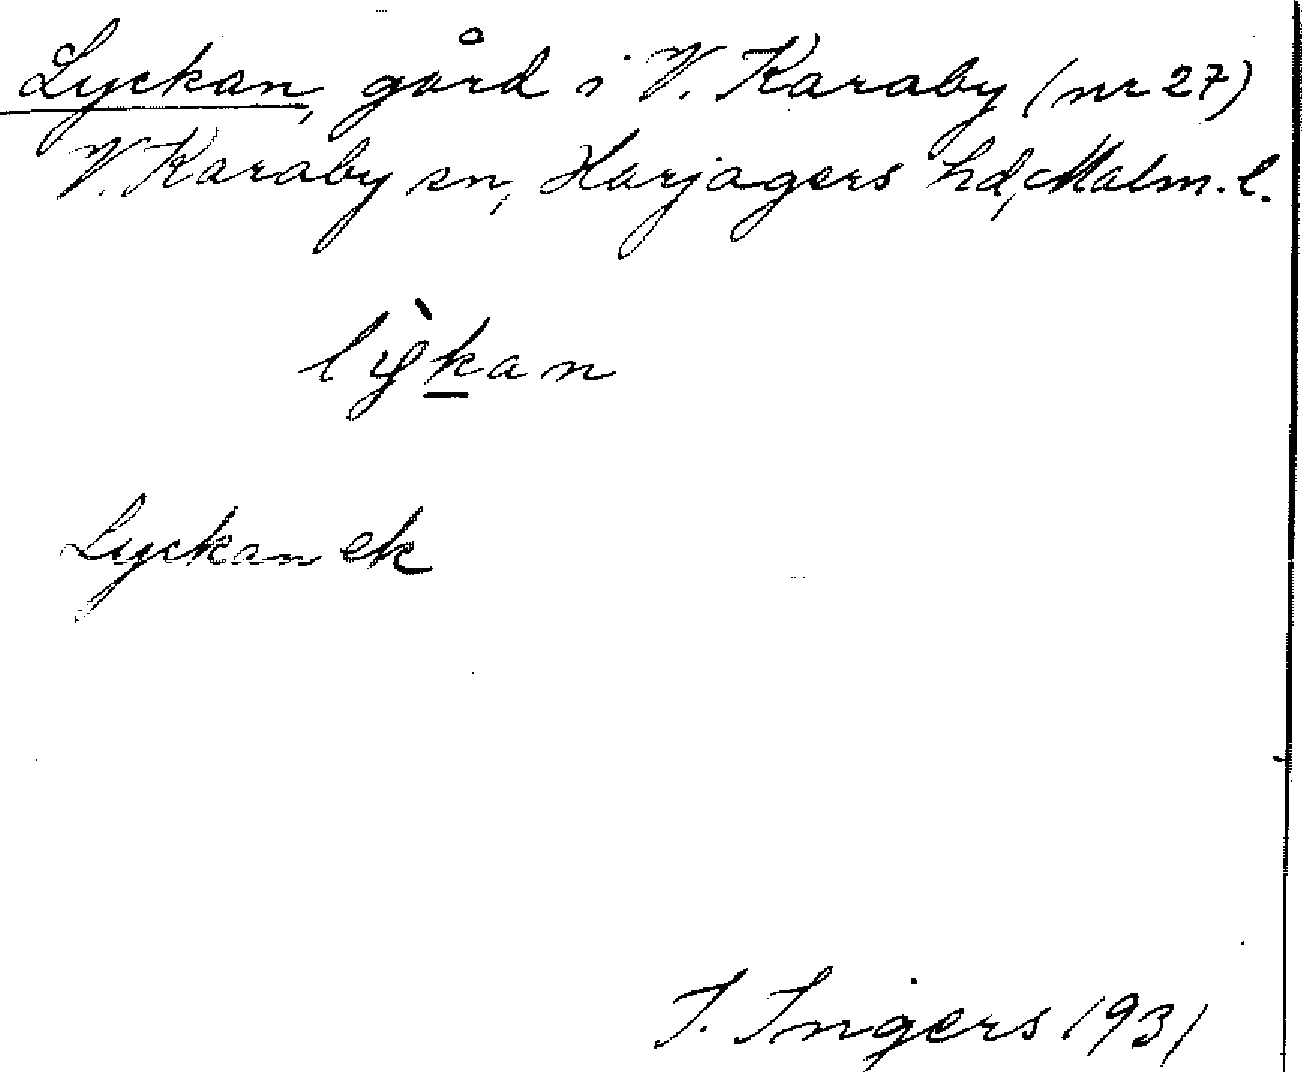 Lyckan, gård i V. Karaby (nr 27)
V. Karaby sn, Harjagers hd, Malm. l.
lỳkan
Lyckan ek
I. Ingers 1931